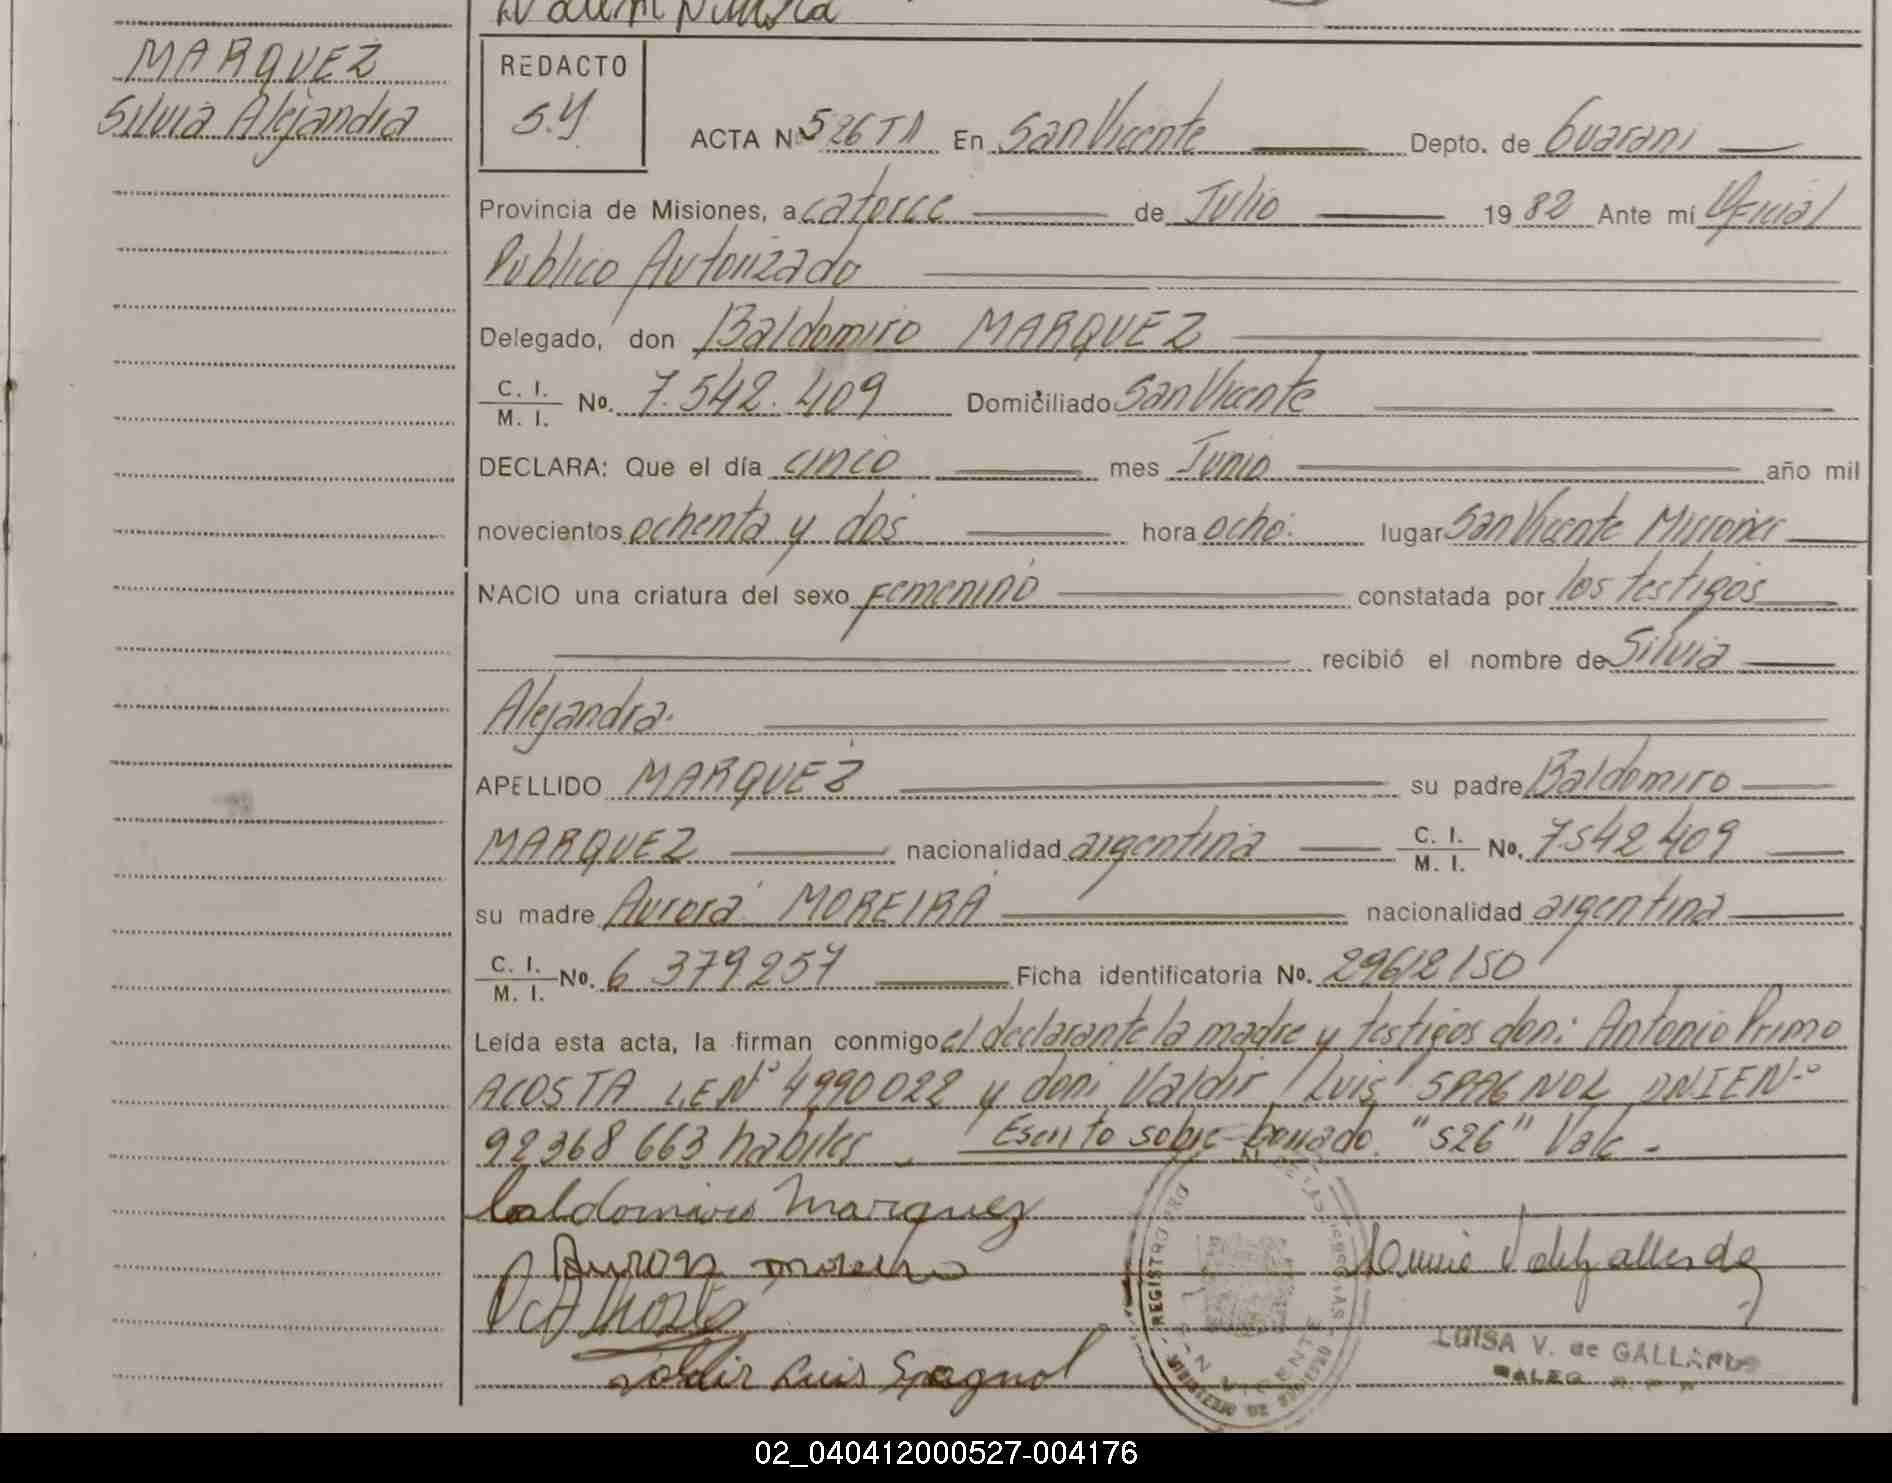 MARQUEZ
Silvia Alejandra
REDACTO
S.Y.
ACTA Nº 526 TI En San Vicente Depto. de Guarani
Provincia de Misiones, a catorce de Julio 1982 Ante mí Oficial
Publico Autorizado
Delegado, don Baldomiro MARQUEZ
C. I. / M. I. No. 7.542.409 Domiciliado San Vicente
DECLARA: Que el día cinco mes Junio año mil
novecientos ochenta y dos hora ocho. lugar San Vicente Misiones
NACIO una criatura del sexo Femenino constatada por los testigos
recibió el nombre de Silvia
Alejandra.
APELLIDO MARQUEZ su padre Baldomiro
MARQUEZ nacionalidad argentina C. I. / M. I. No. 7542409
su madre Aurora MOREIRA nacionalidad argentina
C. I. / M. I. No. 6 379257 Ficha identificatoria No. 29612150
Leída esta acta, la firman conmigo el declarante la madre y testigos don: Antonio Primo
ACOSTA L.E Nº 4990022 y don: Valdir Luis SPAGNOL DNIE Nº
92368663 habiles. Escrito sobre borrado "526" Vale -
baldomiro Marquez
Aurora moreira
Valdir Luis Spagnol
REGISTRO PRO
SAN VICENTE
LUISA V. de GALLARDO
02_040412000527-004176